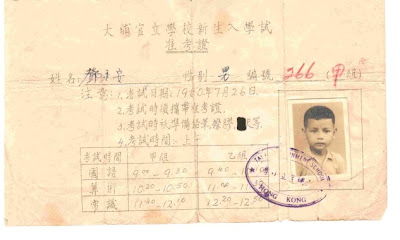 大埔官立學校新生入學試
准考證
姓名: 鄧 安 性別 男 編號 266 (甲組)
注意: 1.考試日期:1960年7月26日
2.考試時須攜帶准考證.
3.考試時須準備鉛筆、
4.考試時間:上午
考試時間 甲組 乙組
國語 9.00-9.30 9.40-
算術 10.20-10.50 11.00-
常識 11.40-12.00 12.20-12.
GOVERNMENT SCHOOL
HONG KONG